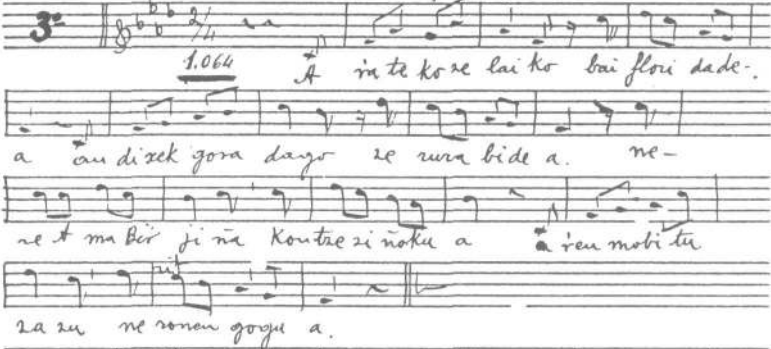 3º 2/4
1.064 A ra te ko ze lai ko bai flori dade-
a an dixek gora dago ze rura bide a. ne-
re A ma Bir ji ña Kontze zi ñoku a a ren mobi tu
rit
za zu ne ronen gogu a.